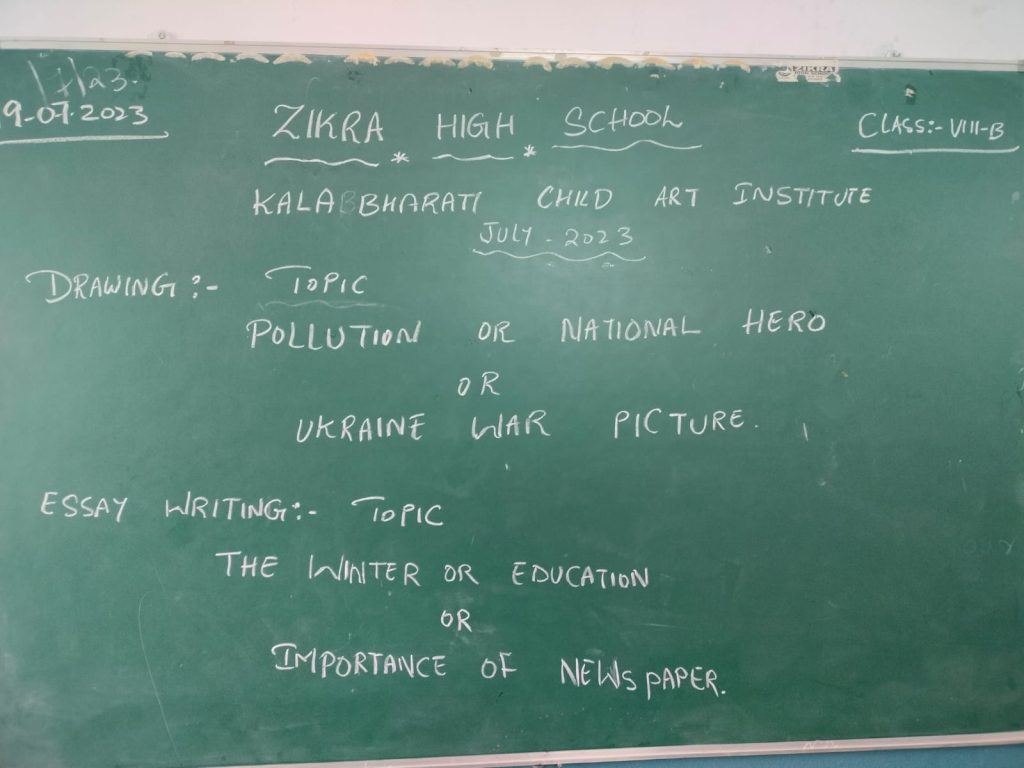 9-07-2023
ZIKRA HIGH SCHOOL
CLASS:- VIII-B
KALABHARATI CHILD ART INSTITUTE
JULY - 2023
DRAWING:- TOPIC
POLLUTION OR NATIONAL HERO
OR
UKRAINE WAR PICTURE.
ESSAY WRITING:- TOPIC
THE WINTER OR EDUCATION
OR
IMPORTANCE OF NEWSPAPER.
ZIKRA